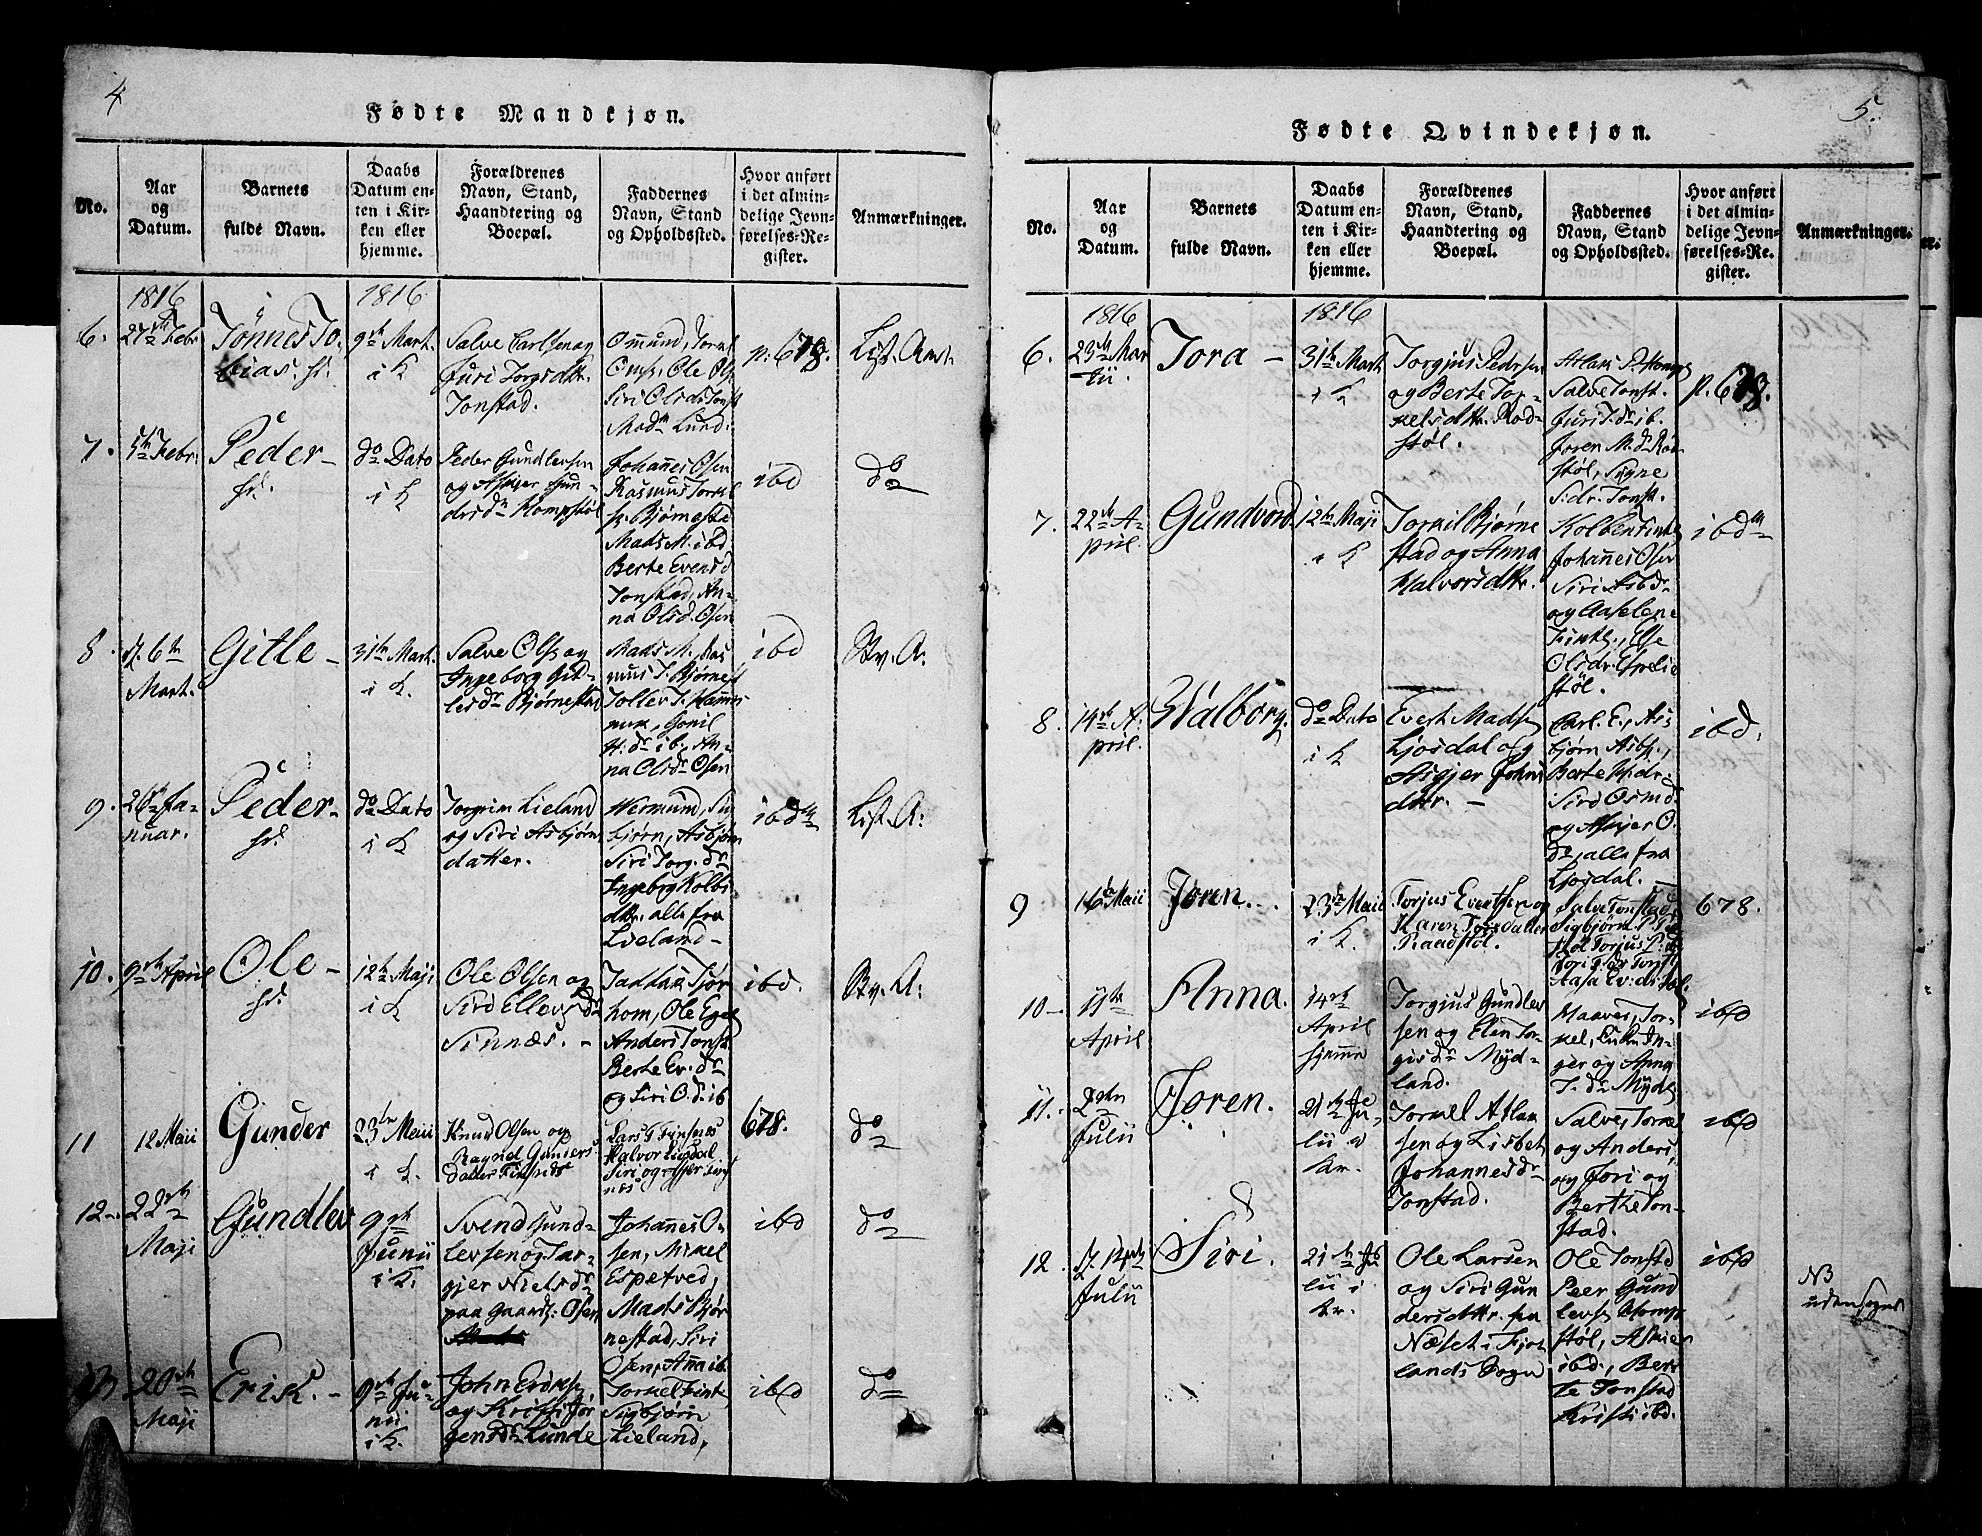 4
Fødte Mandkjøn.
No.
Aar
og
Datum.
Barnets
fulde Navn.
Daabs
Datum en-
ten i Kir-
ken eller
hjemme.
Forældrenes
Navn, Stand,
Haandtering og
Boepæl.
Faddernes
Navn, Stand
og Opholdssted.
Hvor anført
i det almin-
delige Jevn-
førelses-Re-
gister.
Anmærkninger.
1816
1816
6.
27de Febr
Tønnes To-
bias. sr.
9de Mart.
i K
Salve Carlsen og
Juri Torgrsdttr.
Tonstad.
Omund, Torkel
Oms., Ole Ols.
Siri Olsdr Tonst
Madm Lund.
p. 678.
List. Amt.
7.
5te Febr.
Peder –
sr.
do Dato
i K
Peder Gundlevsen
og Asgjer Gun-
dersdr Kompstøl
Johannes Osen
Rasmus Torkel
s. Bjørneste
Mads M. ibd
Berte Evensd
Tonstad, An-
na Olsd. Osen
ibd
do
8.
d. 6te
Mart.
Gitle –
31te Mart.
i K.
Salve Ols. og
Ingeborg Git-
lesdr Bjørnestad
Mads M. Ras
mus T. Bjørnest
Tollev T. Hamm
mer, Gonil
H. dr ib., An-
na Olsdr Osen
ibd
Stv. A:
9.
26de Ja-
nuar.
Peder –
sr.
do Dato
i K
Torgrim Lieland
og Siri Asbjørns
datter.
Hermund, Sig
bjørn, Asbjørn
Siri Torg. dr
Ingeborg Kolbi
dttr. alle fra
Lieland –
ibdm
List. A:
10.
9de April
Ole –
sr.
12te Maji
i K
Ole Olsen og
Siri Ellevsdr
Sinnæs. –
Tallak Tjor
hom, Ole Egel
Anders Tonst
Berte Ev. dr
og Siri O. d. ib
ibd.
Stv. A:
11
12 Maii
Gunder
23de Maii
i K.
Knud Olsen og
Ragnild Gunders
Datter Finsnæs
Lars T Finsnæs
Halvor Liosdal
678.
do
12
22de
Maji
Gundlev
9de
Junii
i K.
Svend Gund-
levsen og Tar-
gjer Nielsdr
paa Gaard: Osen
Johannes O-
sen, Mikel
Espetved,
Mads Bjør
nestad, Siri
Osen, Anna ib.
ibd
do
13
20de
Maji
Erik. –
9de Ju-
nii
i K.
John Eriks.
og Kristi Jor
gensdr Lunde
Torkel Finte
Sigbjørn
Lieland,
ibd
do
5.
Fødte Qvindekjøn.
No.
Aar
og
Datum.
Barnets
fulde Navn.
Daabs
Datum en-
ten i Kir-
ken eller
hjemme.
Forældrenes
Navn, Stand,
Haandtering og
Boepæl.
Faddernes
Navn, Stand
og Opholdssted.
Hvor anført
i det almin-
delige Jevn-
førelses-Re-
gister.
Anmærkninger.
1816
1816
6.
23de Mar
tii.
Tora –
31te Mart
i K
Torgjus Pedersen
og Berte Tor-
kelsdttr. Rod-
støl.
Atlak P. Komps
Salve Tonst.
Juri T. dr ib.
Joren M. dr Rør
støl, Signe
S: dr. Tonst.
p. 678.
7.
22de A-
pril.
Gundvord
12te Maji
i K
Torkil Bjørne
stad og Anna
Halvorsdttr.
Kolben Finte
Johannes Osen
Siri As ib dr
og Aaselene
Finte, Else
Olsdr. Espelie
støl.
ibdm
8.
14de A-
pril.
Walborg.
do Dato
i K
Evert Mads.
Ljosdal og
Asgjer Johns
dttr. –
Carl. E., As
bjørn Asbs.,
Berte H. dr-
Siri Osmd.
og Asgjer O.
dr, alle fra
Ljosdal. –
ibd.
9
16de Maii
Joren..
23de Maii
i K.
Torjus Evertsen og
Karen Torsdatter
Raadstøl.
Salve Tonstad,
Sigbjørn P. Rød
støl Torjus P. ib
678.
10 –
11te
April
Anna.
14de
April
hjemme
Torgjus Gundlev
sen og Elen Tor-
gisdr Myd-
land.
Maaves, Tor-
kel, Enken In-
ger og Anna
T. dr Mydl.
ibd
11.
2den
Julii
Joren.
21de Ju-
lii i
Kr.
Torkel Atlak
sen og Lisbet
Johannesdr
Tonstad.
Salve, Torkel
og Anders,
og Jori og
Berthe Ton-
stad.
ibd
12.
d. 14de
Julii
Siri.
21de Ju
lii i
Kr.
Ole Larsen
og Siri Gun
dersdttr. fra
Næset i Fjot
lands Sogn
Ole Tonstad
Peer Gund
levs. Komps
støl, Askier
ibd., Ber-
te Tonstad
Kristi ibd.
ibd
NB
udensogns